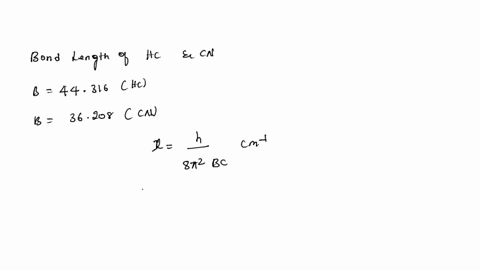 Bond Length of HC & CN
B = 44.316 (HC)
B = 36.208 (CN)
I = h / 8π² BC cm⁻¹